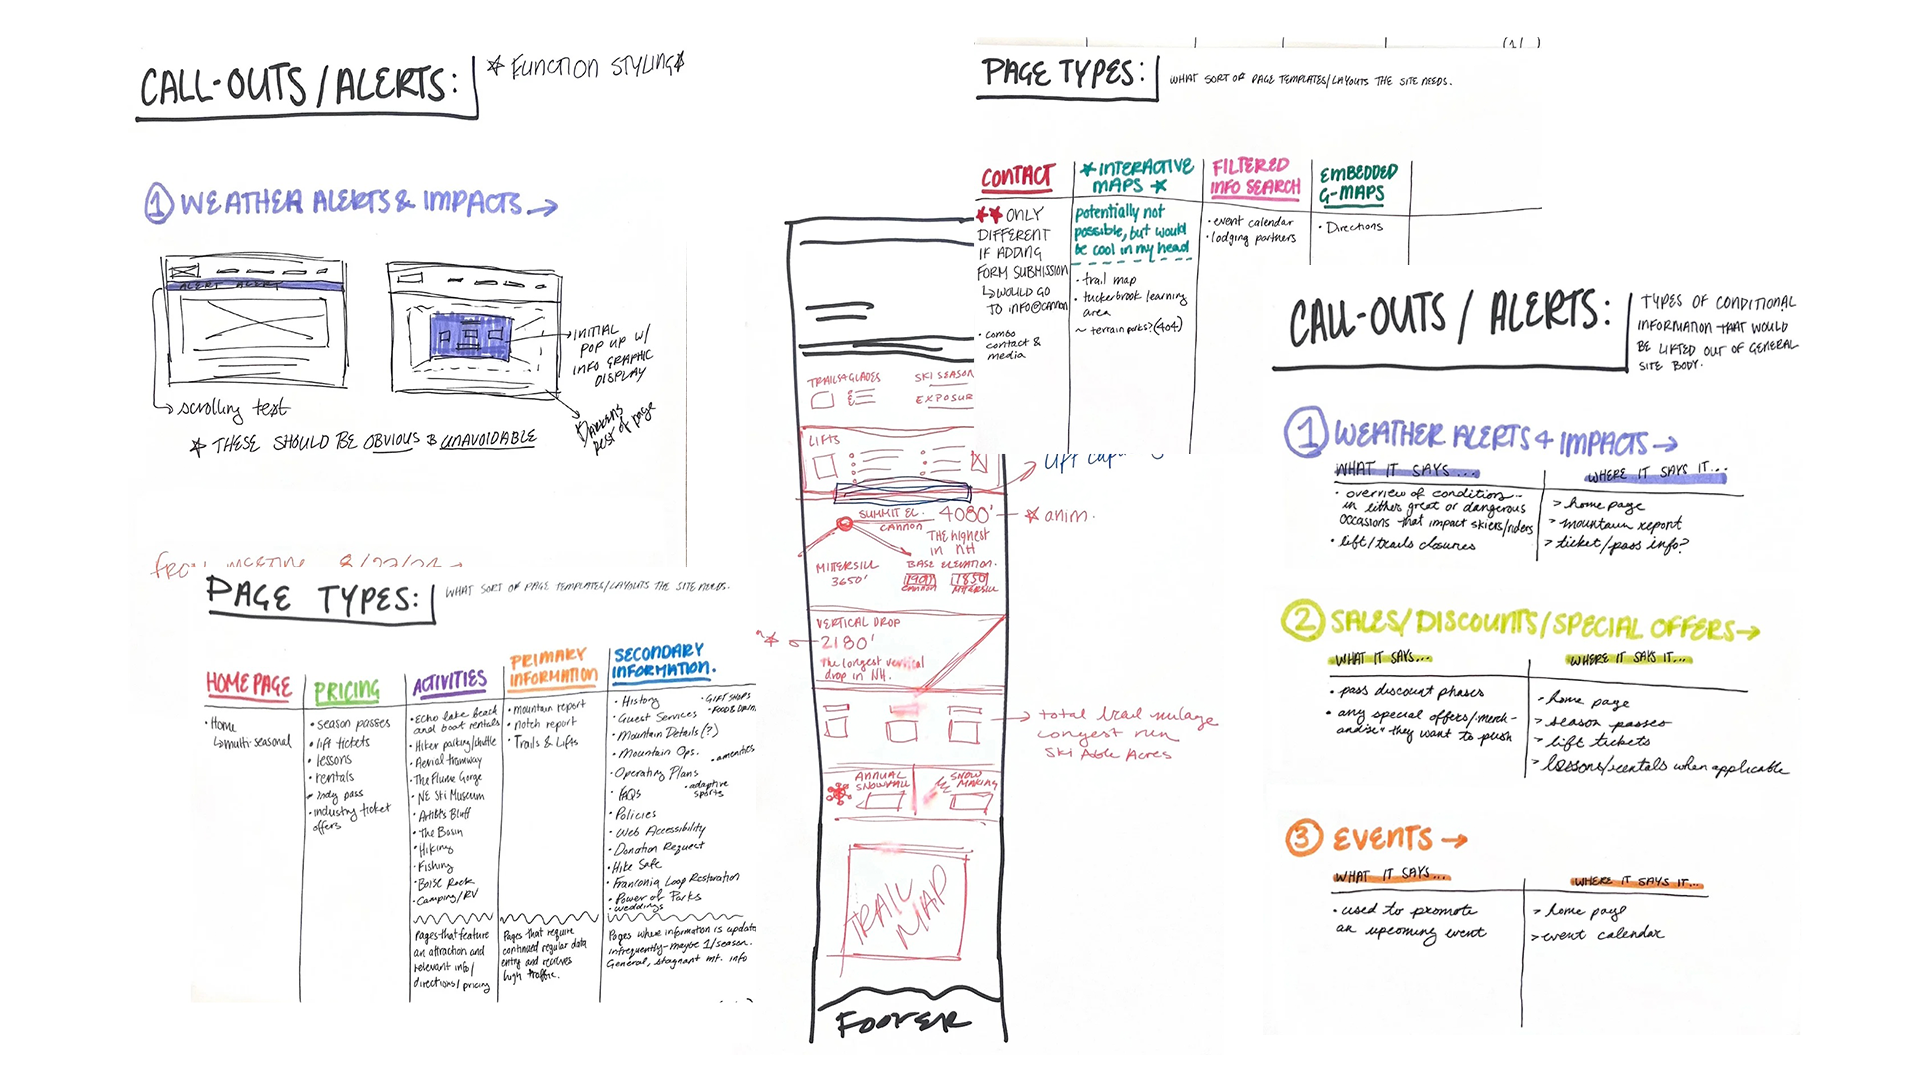 CALL-OUTS/ALERTS:
☆ FUNCTION STYLING☆
① WEATHER ALERTS & IMPACTS →
ALERT ALERT
→ scrolling text
→ INITIAL
POP UP W/
INFO GRAPHIC
DISPLAY
DARKENS
REST OF PAGE
☆ THESE SHOULD BE OBVIOUS & UNAVOIDABLE
PAGE TYPES:
WHAT SORT OF PAGE TEMPLATES/LAYOUTS THE SITE NEEDS.
HOME PAGE
• Home
↳ multi-seasonal
PRICING
• season passes
• lift tickets
• lessons
• rentals
• Indy pass
• industry ticket
offers
ACTIVITIES
• Echo lake beach
and boat rentals
• Hiker parking/shuttle
• Aerial tramway
• The Flume Gorge
• NE Ski Museum
• Artist's Bluff
• The Basin
• Hiking
• Fishing
• Boise Rock
• Camping/RV
Pages that feature
an attraction and
relevant info/
directions/pricing
PRIMARY
INFORMATION
• mountain report
• notch report
• Trails & Lifts
Pages that require
continued regular data
entry and recieves
high traffic.
SECONDARY
INFORMATION.
• History
• Guest Services
• Mountain Details(?)
• Mountain Ops.
• Operating Plans
• FAQs
• Policies
• Web Accessibility
• Donation Request
• Hike Safe
• Franconia Loop Restoration
• Power of Parks
• weddings
• GIFT SHOPS
• FOOD &
• amenities
• adaptive
sports
Pages where information is updat
infrequently-maybe 1/season.
General, stagnant mt. info
TRAILS & GLADES
SKI SEASON
EXPOSUR
LIFTS
SUMMIT EL.
CANNON
4080'
☆ anim.
THE highest
in NH
MITTERSILL
3650'
BASE ELEVATION.
CANNON
1850'
MITTERSILL
VERTICAL DROP
2180'
The longest vertical
drop in NH.
→ total trail mileage
longest run
Ski Able Acres
ANNUAL
SNOWFALL
SNOW
MAKING
TRAIL
MAP
FOOTER
PAGE TYPES:
WHAT SORT OF PAGE TEMPLATES/LAYOUTS THE SITE NEEDS.
CONTACT
★★ ONLY
DIFFERENT
IF ADDING
FORM SUBMISSION
↳ WOULD GO
TO INFO@CANNON
• combo
contact &
media
★ INTERACTIVE
MAPS ★
potentially not
possible, but would
be cool in my head
• trail map
• tuckerbrook learning
area
~ terrain parks? (404)
FILTERED
INFO SEARCH
• event calendar
• lodging partners
EMBEDDED
G-MAPS
• Directions
CALL-OUTS / ALERTS:
TYPES OF CONDITIONAL
INFORMATION THAT WOULD
BE LIFTED OUT OF GENERAL
SITE BODY.
① WEATHER ALERTS + IMPACTS →
WHAT IT SAYS...
• overview of conditions
in either great or dangerous
occasions that impact skiers/riders
• lift/trails closures
WHERE IT SAYS IT...
> home page
> mountain report
> ticket/pass info?
② SALES/DISCOUNTS/SPECIAL OFFERS →
WHAT IT SAYS...
• pass discount phases
• any special offers/"merch-
andise" they want to push
WHERE IT SAYS IT...
> home page
> season passes
> lift tickets
> lessons/rentals when applicable
③ EVENTS →
WHAT IT SAYS...
• used to promote
an upcoming event
WHERE IT SAYS IT...
> home page
> event calendar